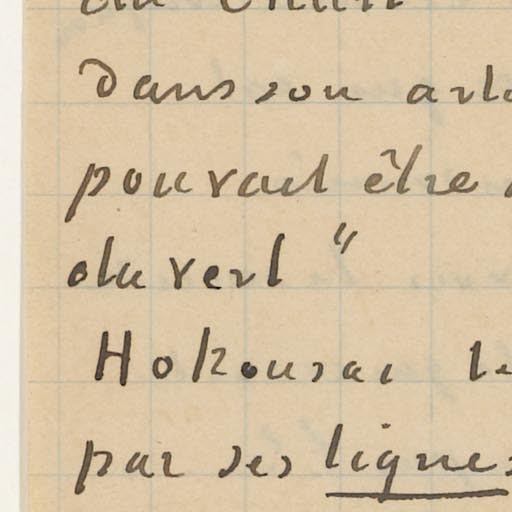 dans son
pouvait être
du vert "
Hokousai
par ses lignes